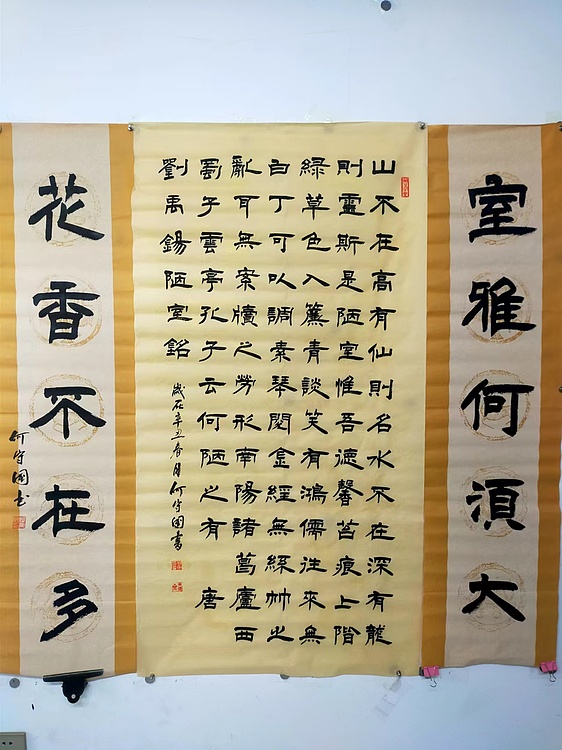 室雅何須大
山不在高有仙則名水不在深有龍
則靈斯是陋室惟吾德馨苔痕上階
綠草色入簾青談笑有鴻儒往來無
白丁可以調素琴閱金經無絲竹之
亂耳無案牘之勞形南陽諸葛廬西
蜀子雲亭孔子云何陋之有 唐
劉禹錫陋室銘
歲在辛丑春月何守國書
花香不在多
何守國書